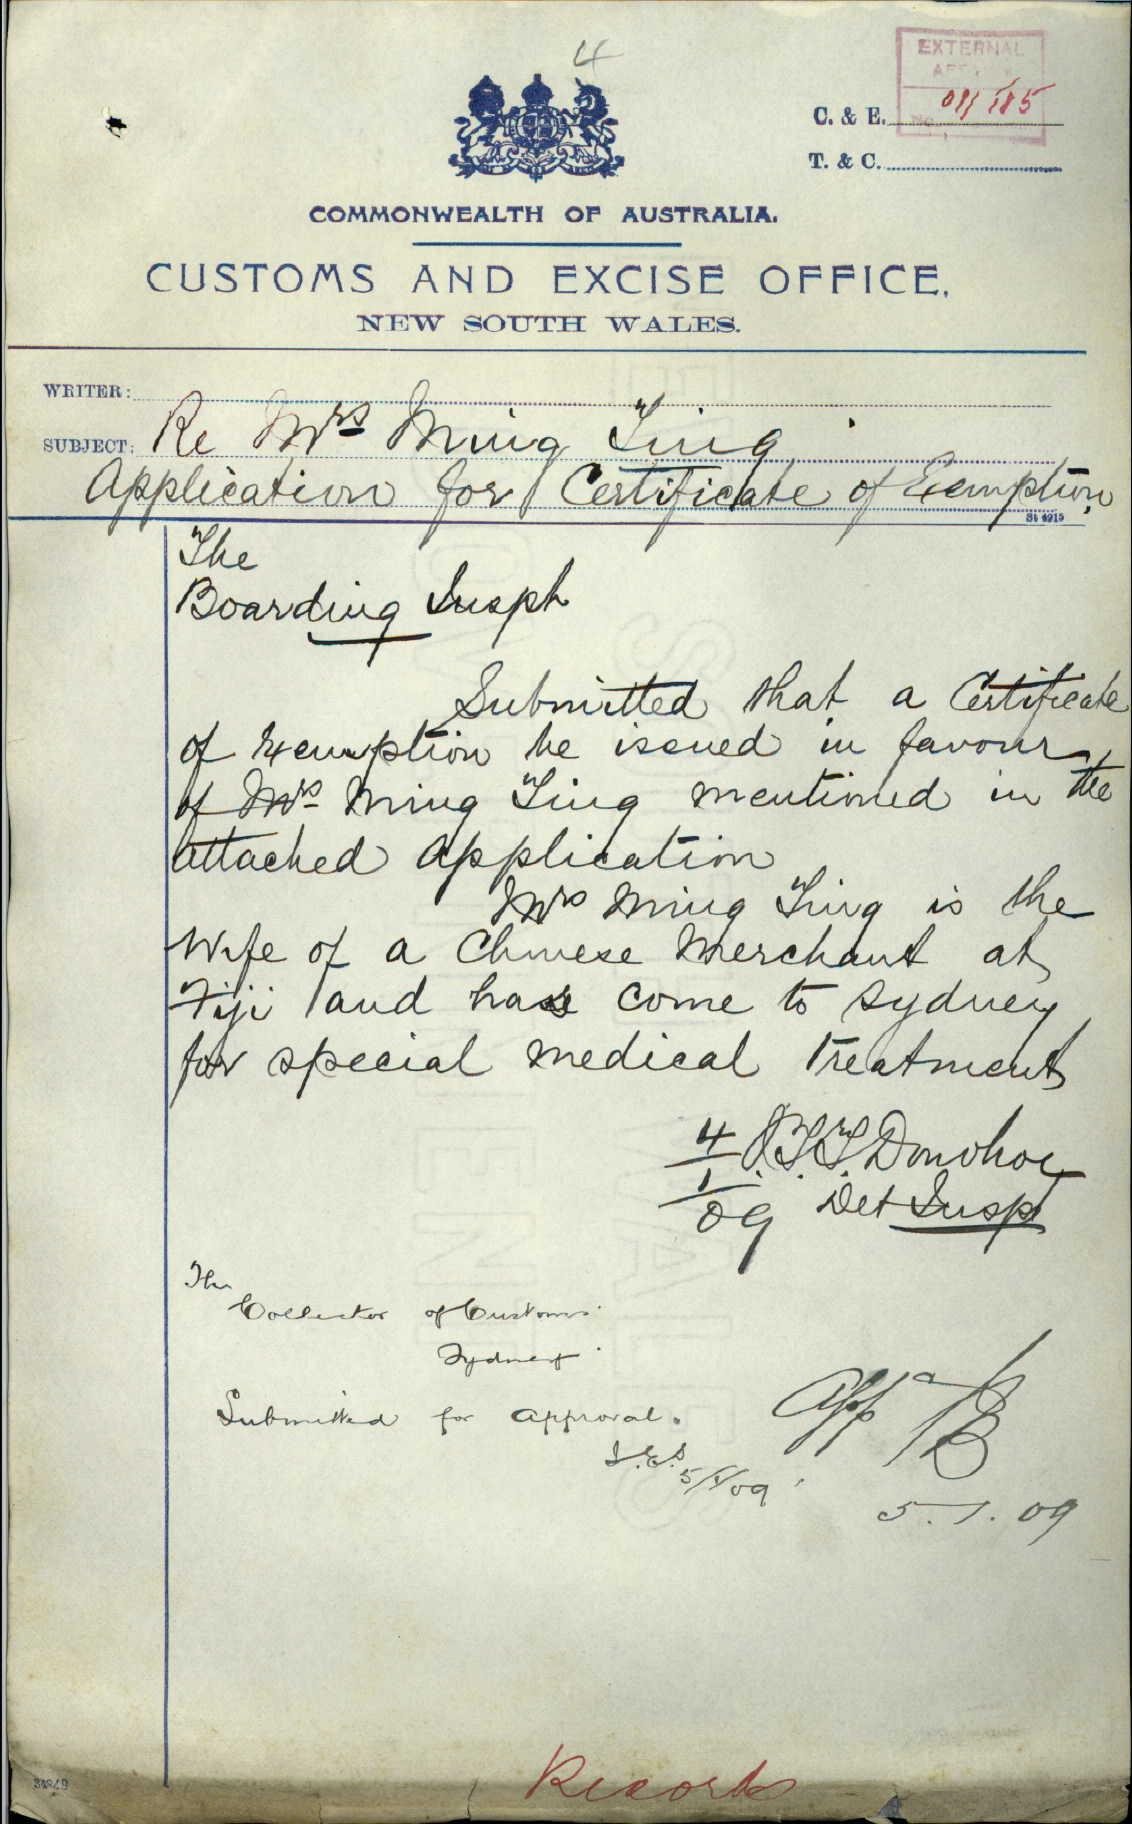 4
EXTERNAL
C. & E.
T. & C.
COMMONWEALTH OF AUSTRALIA.
CUSTOMS AND EXCISE OFFICE,
NEW SOUTH WALES.
WRITER:
SUBJECT: Re Mrs Ming Ting
Application for Certificate of Exemption
St 4915
The
Boarding Inspr
Submitted that a Certificate
of Exemption be issued in favour
of Mrs Ming Ting mentioned in the
attached application
Mrs Ming Ting is the
Wife of a Chinese Merchant at
Fiji and has come to Sydney
for special medical treatment
4/1/09 J.T.T. Donohoe
Det Insp
The
Collector of Customs
Sydney
Submitted for approval.
5/1/09
App d
5.1.09
Records